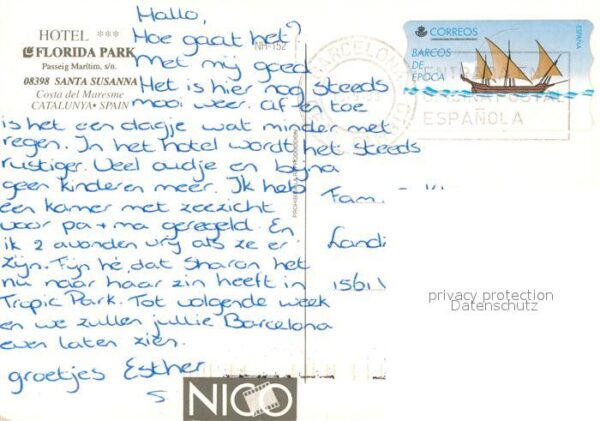 HOTEL ***
FLORIDA PARK
Passeig Marítim, s/n.
08398 SANTA SUSANNA
Costa del Maresme
CATALUNYA • SPAIN
NH-152
Hallo,
Hoe gaat het?
Met mij goed
Het is hier nog steeds
mooi weer. af en toe
is het een dagje wat minder met
regen. In het hotel wordt het steeds
rustiger. Veel oudje en bijna
geen kinderen meer. Ik heb
een kamer met zeezicht
voor pa + ma geregeld. En
ik 2 avonden vrij als ze er
zijn. Fijn hé, dat Sharon het
nu naar haar zin heeft in
Tropic Park. Tot volgende week
en we zullen jullie Barcelona
even laten zien.
groetjes Esther
CORREOS
ESPAÑA
BARCOS
DE
EPOCA
BARCELONA
POSTAL
ESPAÑOLA
Fam.
Landi
1561
privacy protection
Datenschutz
NICO